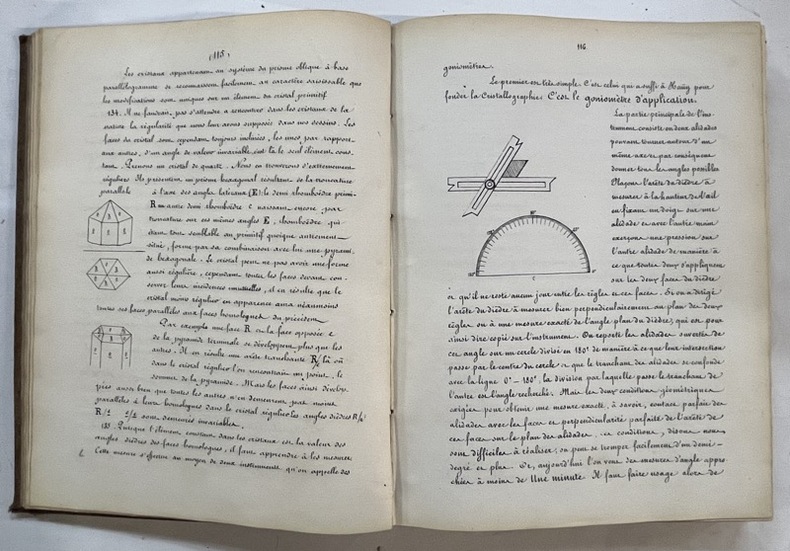 (115)
Les cristaux appartenant au système du prisme oblique à base
parallélogramme se reconnaissent facilement au caractère saisissable que
les modifications sont uniques sur un élément du cristal primitif
134. Il ne faudrait pas s'attendre à rencontrer dans les cristaux de la
nature la régularité que nous leur avons supposée dans nos dessins. Les
faces du cristal sont cependant toujours inclinées, les unes par rapport
aux autres, d'un angle de valeur invariable, c'est là le seul élément cons-
tant. Prenons un cristal de quartz. Nous en trouverons d'extrêmement
réguliers. Ils présentent un prisme hexagonal résultant de la troncature
parallèle à l'axe des angles latéraux (E); le demi rhomboèdre primi-
R un autre demi rhomboèdre naissant encore par
troncature sur ces mêmes angles E, rhomboèdre qui
étant tout semblable au primitif quoique autrement
situé, forme par sa combinaison avec lui une pyrami-
de hexagonale. Le cristal peut ne pas avoir une forme
aussi régulière, cependant toutes les faces devant con-
server leurs incidences mutuelles, il en résulte que le
cristal moins régulier en apparence aura néanmoins
toutes ses faces parallèles aux faces homologues du précédent
Par exemple une face R et la face opposée
de la pyramide terminale se développent plus que les
autres. Il en résulte une arête tranchante R/ là où
dans le cristal régulier l'on rencontrait un point, le
sommet de la pyramide. Mais les faces ainsi dévelop-
pées aussi bien que toutes les autres n'en demeurent pas moins
parallèles à leurs homologues dans le cristal régulier les angles dièdres
sont demeurés invariables.
135. Puisque l'élément constant dans les cristaux est la valeur des
angles dièdres des faces homologues, il faut apprendre à les mesurer
Cette mesure s'effectue au moyen de deux instruments qu'on appelle des
116
goniomètres.
Le premier est très simple. C'est celui qui a suffi à Haüy pour
fonder la Cristallographie. C'est le goniomètre d'application.
La partie principale de l'ins-
trument consiste en deux alidades
pouvant tourner autour d'un
même axe et par conséquent
donner tous les angles possibles
Plaçons l'arête du dièdre à
mesurer à la hauteur de l'œil
en fixant un doigt sur une
alidade et avec l'autre main
exerçons une pression sur
l'autre alidade de manière à
ce que toutes deux s'appliquent
sur les deux faces du dièdre
et qu'il ne reste aucun jour entre les règles et ces faces. Si on a dirigé
l'arête du dièdre à mesurer bien perpendiculairement au plan des deux
règles on a une mesure exacte de l'angle plan du dièdre, qui est pour
ainsi dire copié sur l'instrument. On reporte les alidades ouvertes de
cet angle sur un cercle divisé en 180° de manière à ce que leur intersection
passe par le centre du cercle et que le tranchant des alidades se confonde
avec la ligne 0° - 180°, la division par laquelle passe le tranchant de
l'autre est l'angle recherché. Mais les deux conditions géométriques
exigées pour obtenir une mesure exacte, à savoir, contact parfait des
alidades avec les faces et perpendicularité parfaite de l'arête de
ces faces sur le plan des alidades, ces conditions, disons nous
sont difficiles à réaliser; on peut se tromper facilement d'un demi-
degré et plus. Or, aujourd'hui l'on veut des mesures d'angle appro
chées à moins de Une minute Il faut faire usage alors de